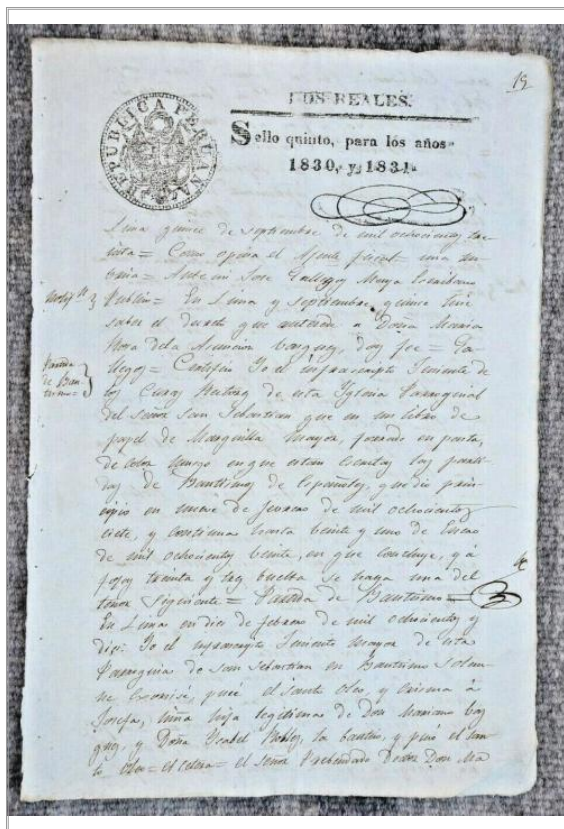 19
DOS REALES.
REPUBLICA PERUANA
Sello quinto, para los años
1830, y 1831.
Lima quince de septiembre de mil ochocientos tre
inta = Como opina el Agente fiscal = una
= Ante mi Jose Gallegos Mora Escribano
Publico = En Lima y septiembre quince hice
saber el decreto que antecede a Doña Maria
Rosa dela Asuncion Vasquez, doy fee = Ga
llegos = Certifico Yo el infrascripto Teniente de
los Curas Rectores de esta Yglesia Parroquial
del señor San Sebastian que en un libro de
papel de Marquilla mayor, forrado en pasta,
de color en que estan escritas las parti
das de Bautismos de Españoles, que dio prin
cipio en nueve de febrero de mil ochocientos
ciete, y contiena hasta beinte y uno de Enero
de mil ochocientos beinte, en que concluye, y á
fojas treinta y tres buelta se haya una del
tenor siguiente = Partida de Bautismo =
En Lima en dies de febrero de mil ochocientos y
dies: Yo el infrascripto Teniente mayor de esta
Parroquia de san Sebastian en Bautismo solem
ne Exorsisé, pucé el santo Oleo, y Crisma á
Josefa, niña hija legitima de Don Mariano Vas
quez, y Doña Ysabel Robles, la bautisó, y puso el san
to oleo = etcetera = el señor Prebendado Doctor Don Ma
Partida
de Bau
tismo =